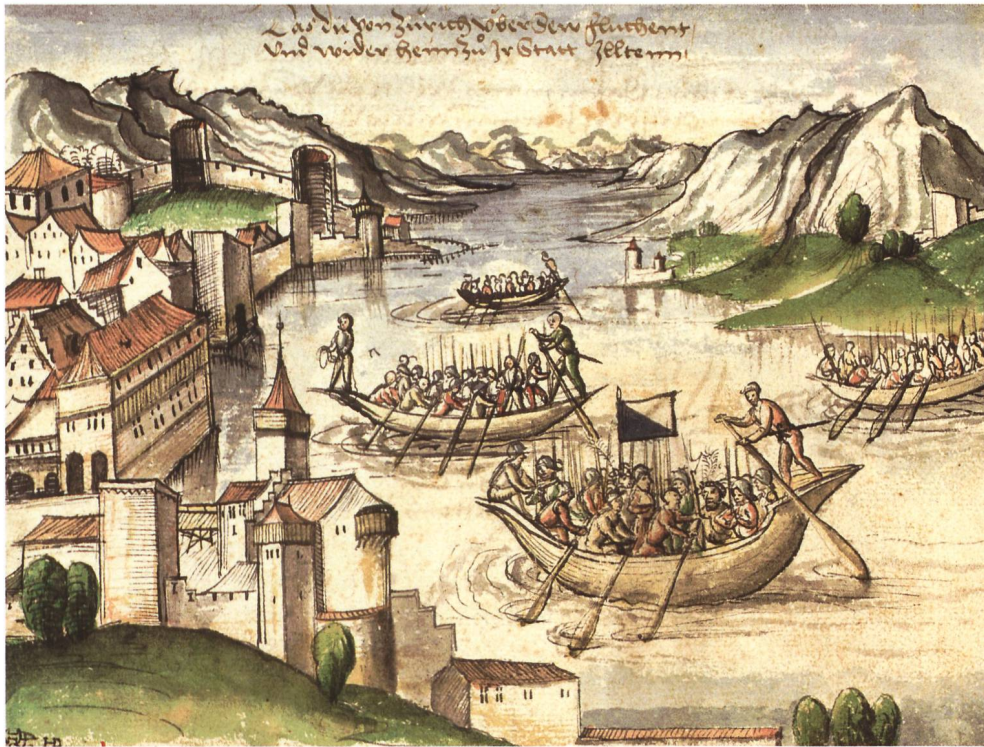 Das die von Zürich über See fluchent
Und wider heim zů Ir Statt Illtenn